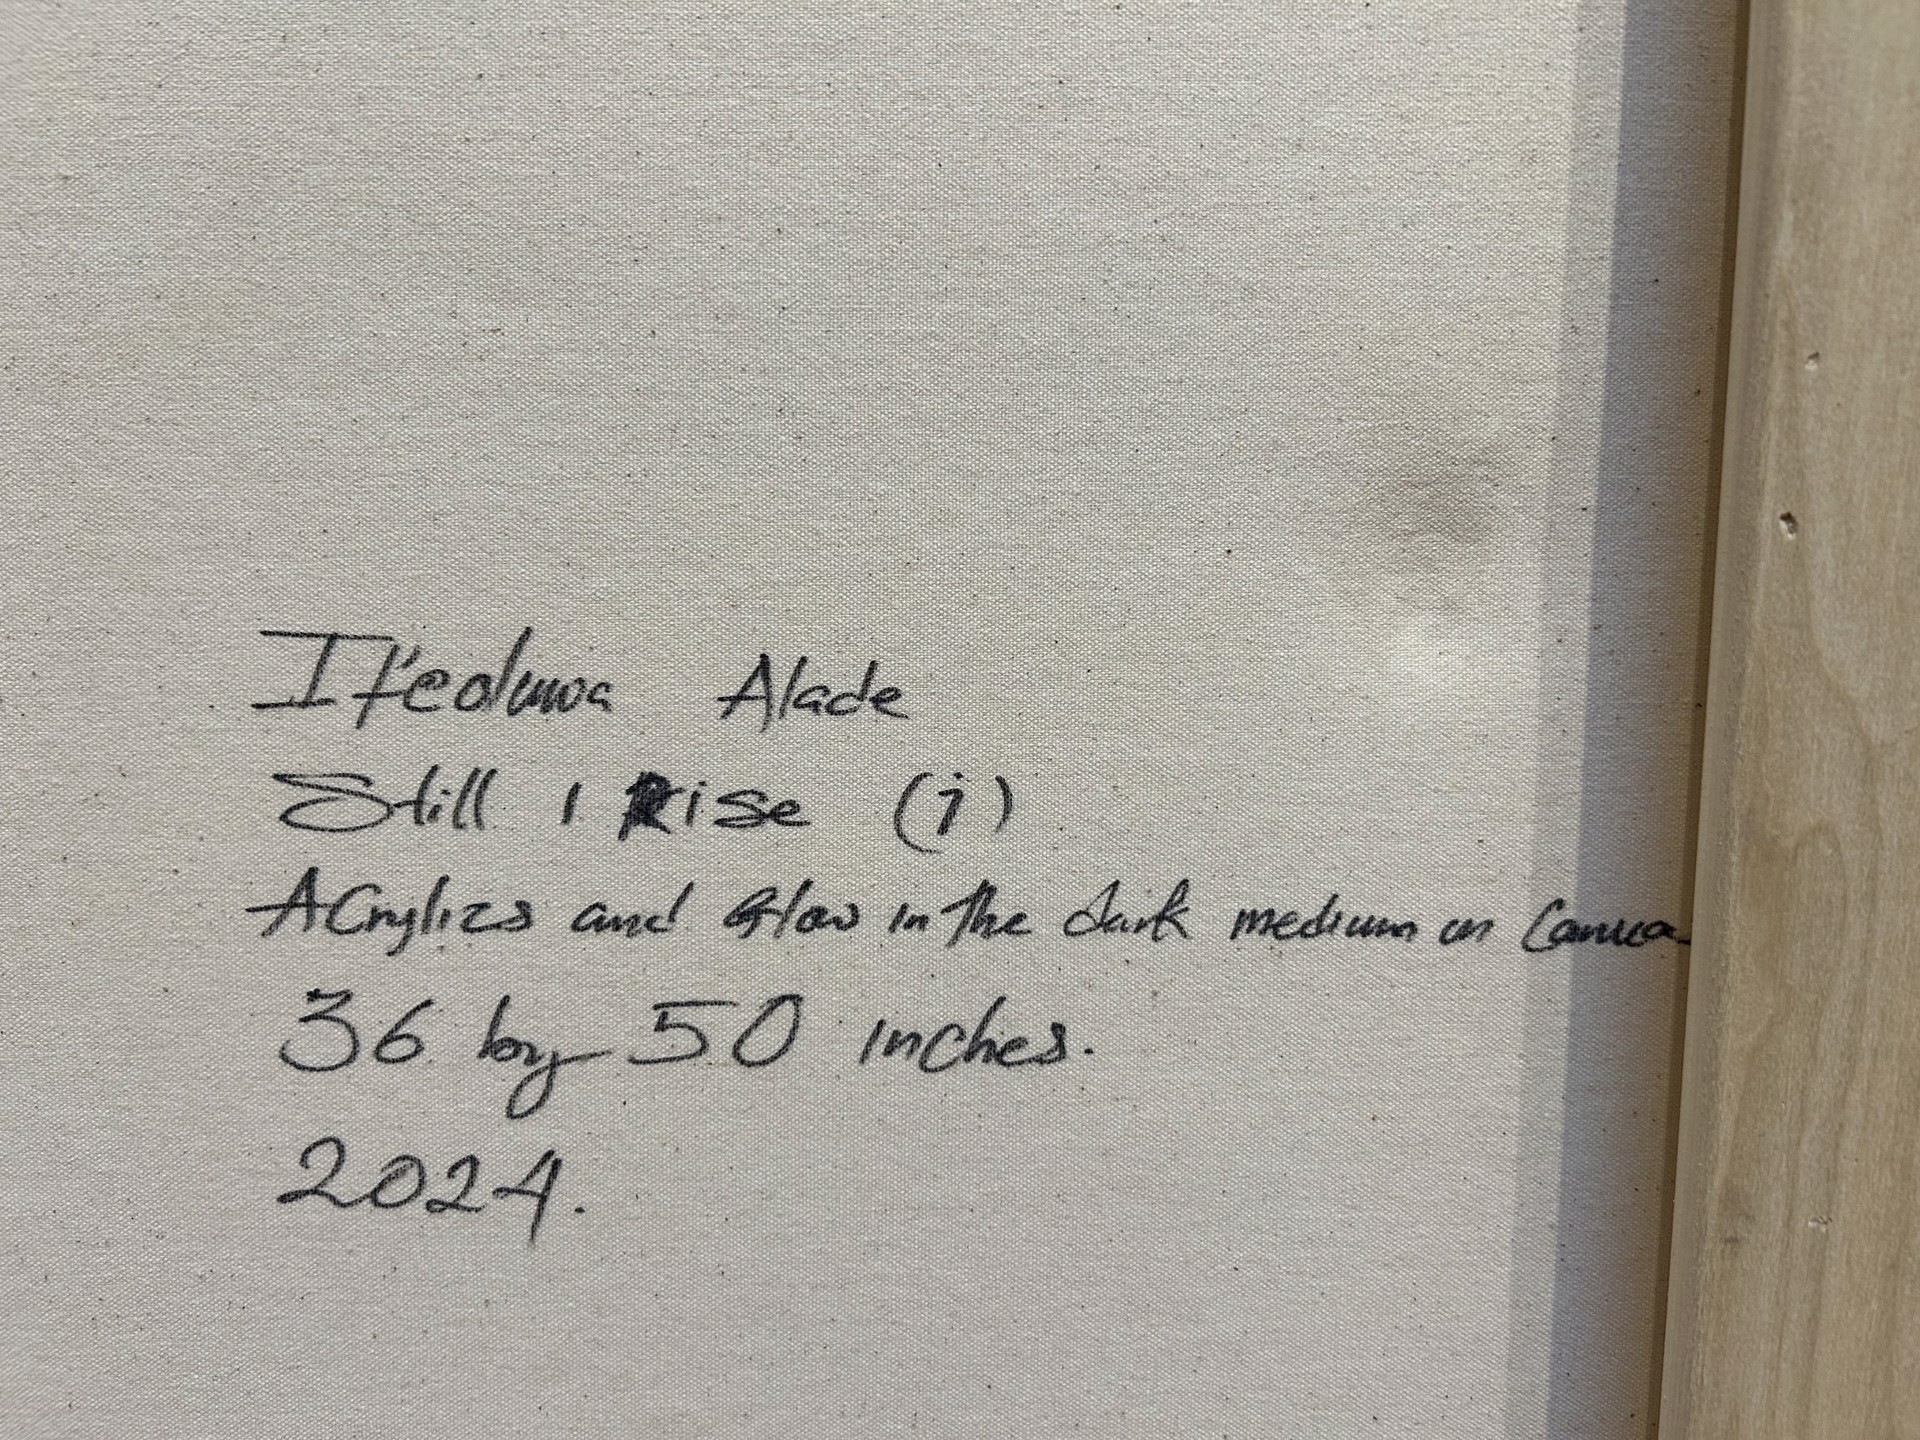 Ifeoluwa Alade
Still I Rise (i)
Acrylics and Glow in the dark medium on Canva
36 by 50 inches.
2024.